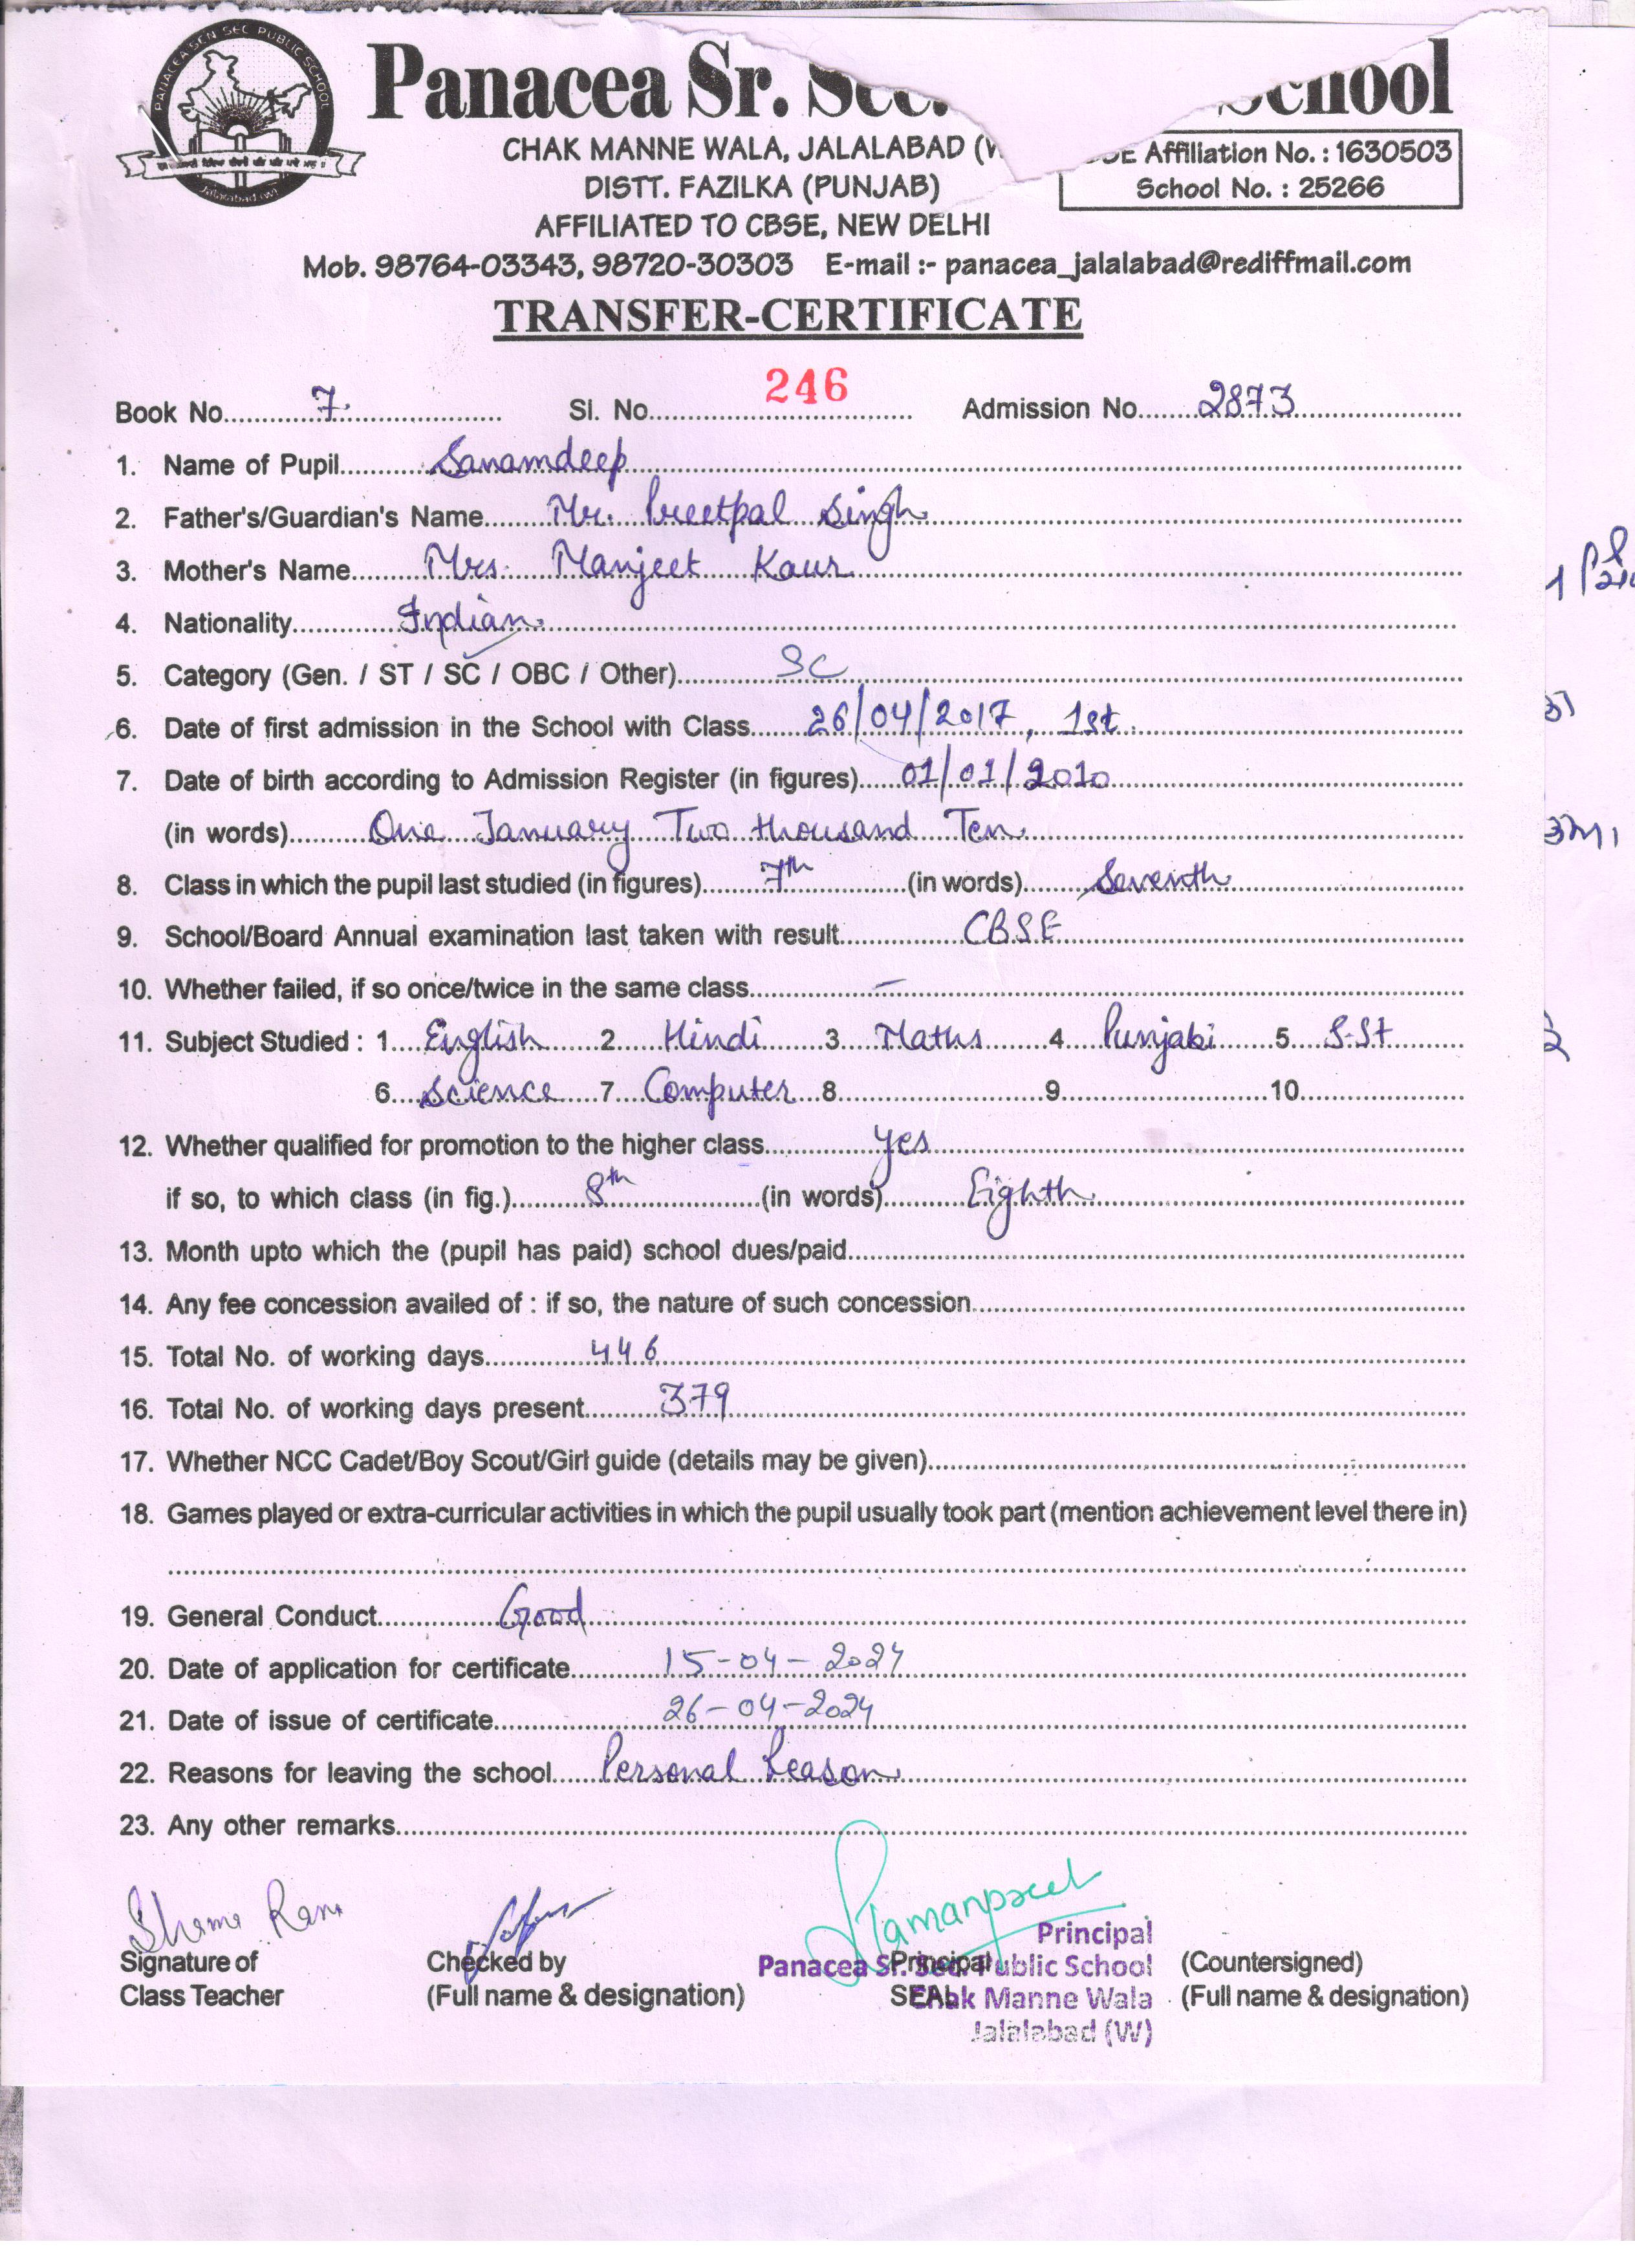 PANACEA SEN SEC PUBLIC SCHOOL
Jalalabad (W)
Panacea Sr. Sec. School
CHAK MANNE WALA, JALALABAD (W
DISTT. FAZILKA (PUNJAB)
AFFILIATED TO CBSE, NEW DELHI
SE Affiliation No. : 1630503
School No. : 25266
Mob. 98764-03343, 98720-30303 E-mail :- panacea_jalalabad@rediffmail.com
TRANSFER-CERTIFICATE
Book No. 7. Sl. No. 246 Admission No. 2873
1. Name of Pupil Sanamdeep
2. Father's/Guardian's Name Mr. Preetpal Singh
3. Mother's Name Mrs. Manjeet Kaur
4. Nationality Indian
5. Category (Gen. / ST / SC / OBC / Other) SC
6. Date of first admission in the School with Class 26/04/2017, 1st
7. Date of birth according to Admission Register (in figures) 01/01/2010
(in words) One January Two thousand Ten
8. Class in which the pupil last studied (in figures) 7th (in words) Seventh
9. School/Board Annual examination last taken with result CBSE
10. Whether failed, if so once/twice in the same class –
11. Subject Studied : 1 English 2 Hindi 3 Maths 4 Punjabi 5 S.St
6 Science 7 Computer 8 9 10
12. Whether qualified for promotion to the higher class yes
if so, to which class (in fig.) 8th (in words) Eighth
13. Month upto which the (pupil has paid) school dues/paid
14. Any fee concession availed of : if so, the nature of such concession
15. Total No. of working days 446
16. Total No. of working days present 379
17. Whether NCC Cadet/Boy Scout/Girl guide (details may be given)
18. Games played or extra-curricular activities in which the pupil usually took part (mention achievement level there in)
19. General Conduct Good
20. Date of application for certificate 15-04-2024
21. Date of issue of certificate 26-04-2024
22. Reasons for leaving the school Personal Reason
23. Any other remarks
Shama Rani
Signature of Class Teacher
Checked by
(Full name & designation)
Principal
SEAL
Principal
Panacea Sr. Sec. Public School
Chak Manne Wala
Jalalabad (W)
(Countersigned)
(Full name & designation)